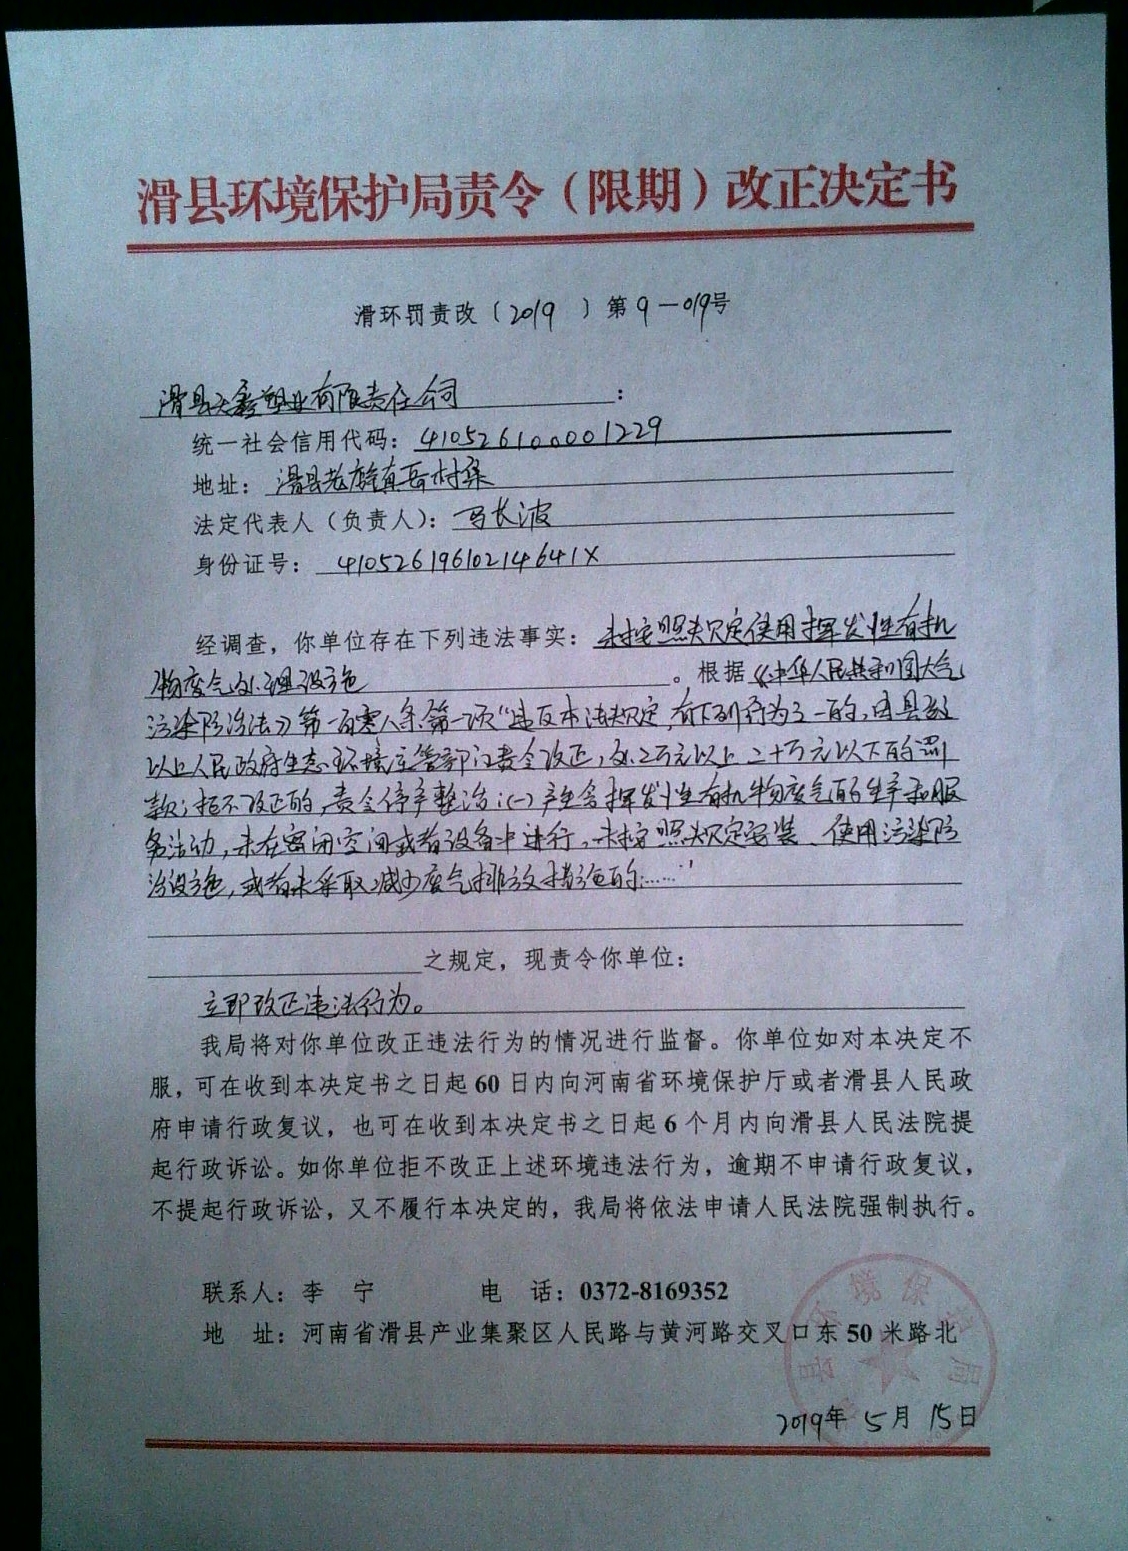 滑县环境保护局责令（限期）改正决定书
滑环罚责改〔2019 〕第9－019号
滑县天鑫塑业有限责任公司：
统一社会信用代码：410526100001229
地址：滑县老店镇真吾村集
法定代表人（负责人）：马长波
身份证号：41052619610214641X
经调查，你单位存在下列违法事实：未按照规定使用挥发性有机
物废气处理设施。根据《中华人民共和国大气
污染防治法》第一百零八条第一项“违反本法规定，有下列行为之一的，由县级
以上人民政府生态环境主管部门责令改正，处2万元以上二十万元以下的罚
款；拒不改正的，责令停产整治：（一）产生含挥发性有机物废气的生产和服
务活动，未在密闭空间或者设备中进行，未按照规定安装、使用污染防
治设施，或者未采取减少废气排放措施的……”
之规定，现责令你单位：
立即改正违法行为。
我局将对你单位改正违法行为的情况进行监督。你单位如对本决定不
服，可在收到本决定书之日起60日内向河南省环境保护厅或者滑县人民政
府申请行政复议，也可在收到本决定书之日起6个月内向滑县人民法院提
起行政诉讼。如你单位拒不改正上述环境违法行为，逾期不申请行政复议，
不提起行政诉讼，又不履行本决定的，我局将依法申请人民法院强制执行。
联系人：李 宁 电 话：0372-8169352
地 址：河南省滑县产业集聚区人民路与黄河路交叉口东50米路北
2019年5月15日